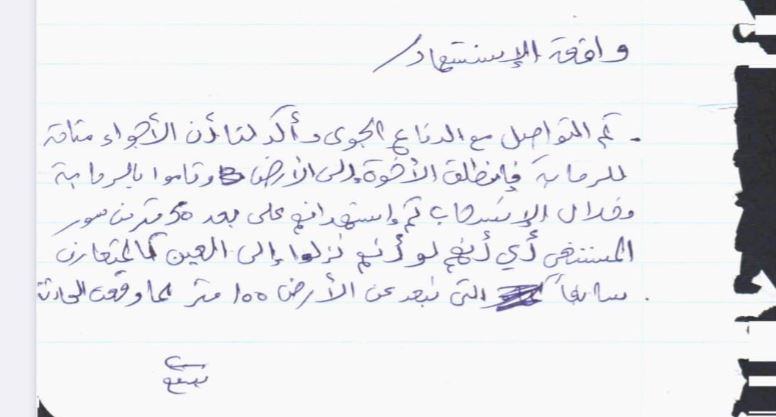 واقعة الإستشهاد /
- تم التواصل مع الدفاع الجوى وأكد لنا أن الأجواء متاحة
للرماية فإنطلق الأخوة إلى الأرض وقاموا بالرماية
وخلال الإنسحاب تم إستهدافهم على بعد 50 متر من سور
المستشفى أي أنهم لو أنهم نزلوا إلى العين المتعارف
سابقاً التى تبعد عن الأرض 100 متر لما وقعت الحادثة .
يتبع